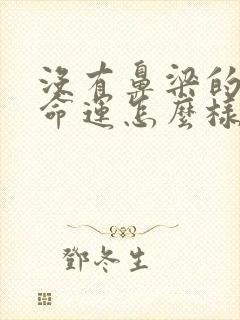 沒有鼻梁的
命運怎麼樣
鄧冬生